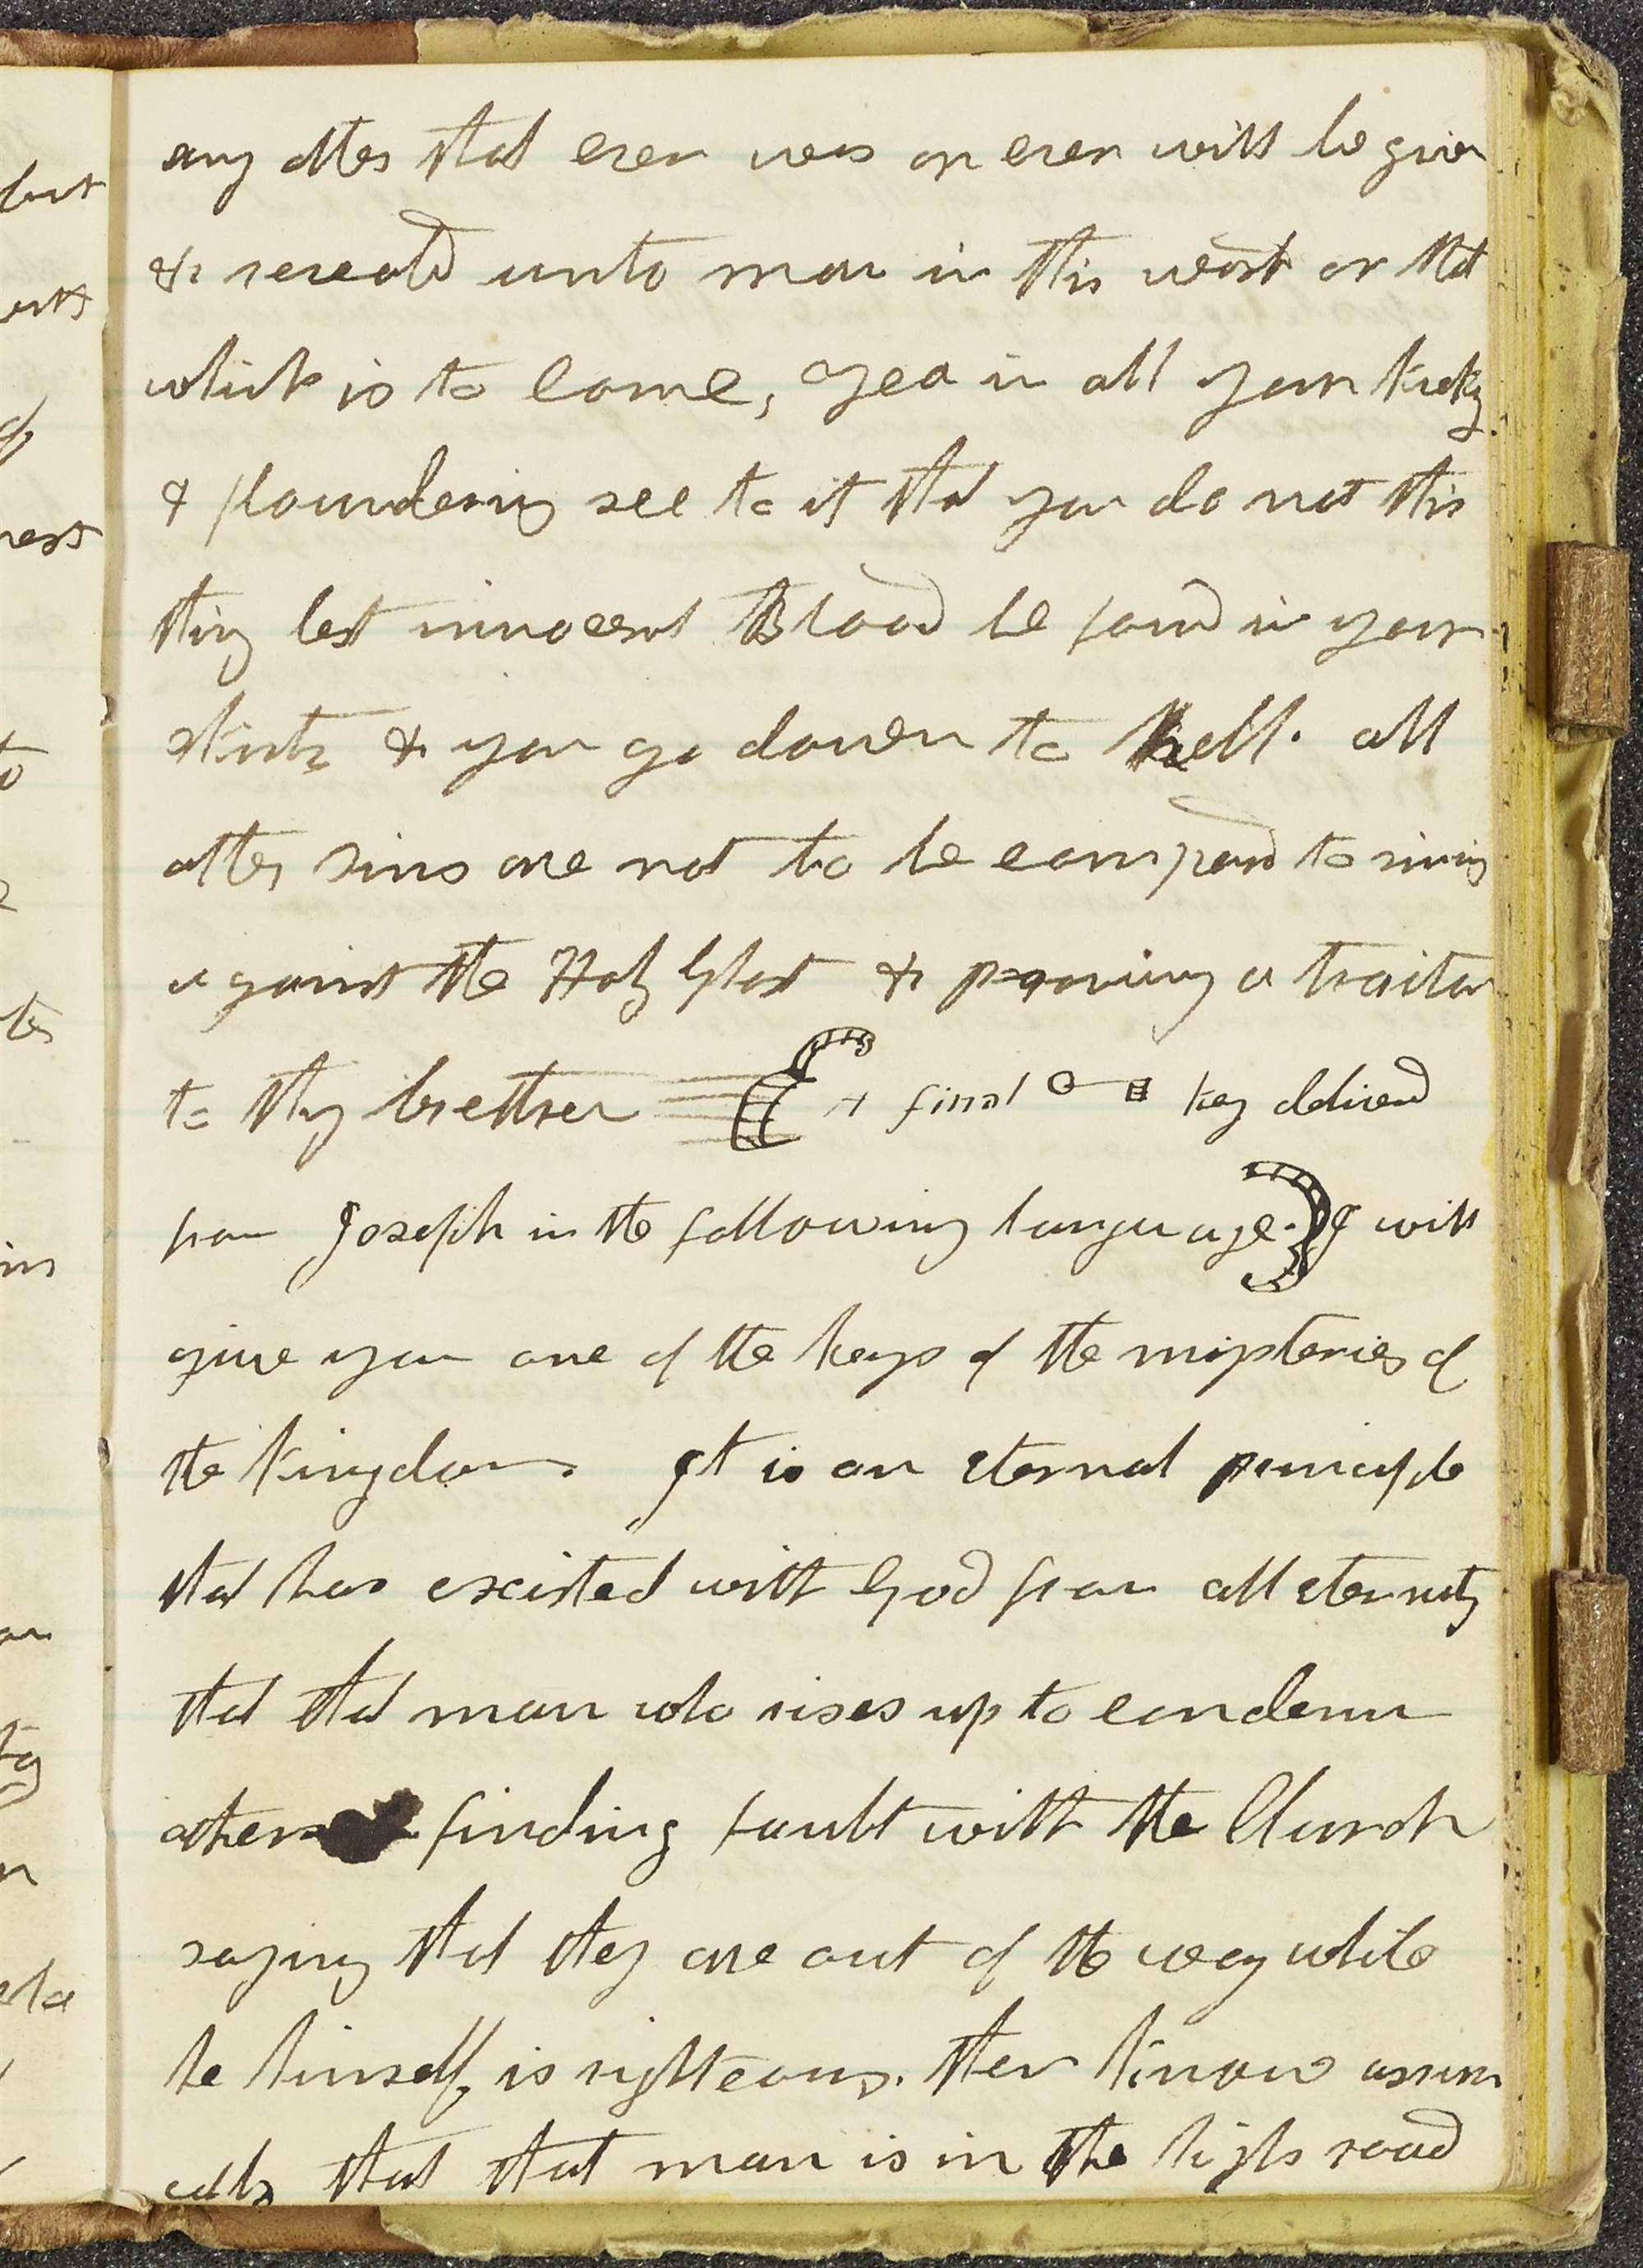 any other that ever was or ever will be given
& reveald unto man in this world or that
which is to come, yea in all your kicking
& floundering see to it that you do not this
thing lest innocent Blood be found in your
skirts & you go down to hell. all
other sins are not to be compard to sining
against the Holy Ghost & proving a traitor
to thy brethren + final key deliverd
from Joseph in the following language. I will
give you one of the keys of the mysteries of
the kingdom. It is an eternal principle
that has existed with God from all eternity
that that man who rises up to condemn
others finding fault with the Church
saying that they are out of the way while
he himself is righteous, then know assur
edly that that man is in the high road